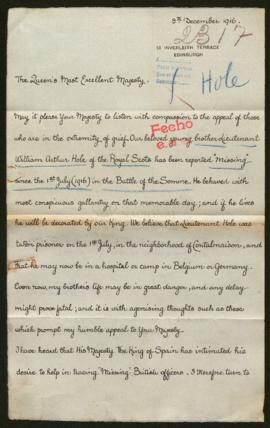 5th December 1916.
2317
13 INVERLEITH TERRACE
EDINBURGH
Hole
The Queen's Most Excellent Majesty.
May it please Your Majesty to listen with compassion to the appeal of those
who are in the extremity of grief. Our beloved young brother Lieutenant
Fecho
William Arthur Hole of the Royal Scots has been reported "Missing"
since the 1st July (1916) in the Battle of the Somme. He behaved with
most conspicuous gallantry on that memorable day; and if he lives
he will be decorated by our King. We believe that Lieutenant Hole was
taken prisoner on the 1st July, in the neighborhood of Contalmaison, and
that he may now be in a hospital or camp in Belgium or Germany.
Even now, my brother's life may be in great danger, and any delay
might prove fatal; and it is with agonising thoughts such as these
which prompt my humble appeal to Your Majesty.
I have heard that His Majesty The King of Spain has intimated his
desire to help in tracing "Missing" British officers. I therefore turn to